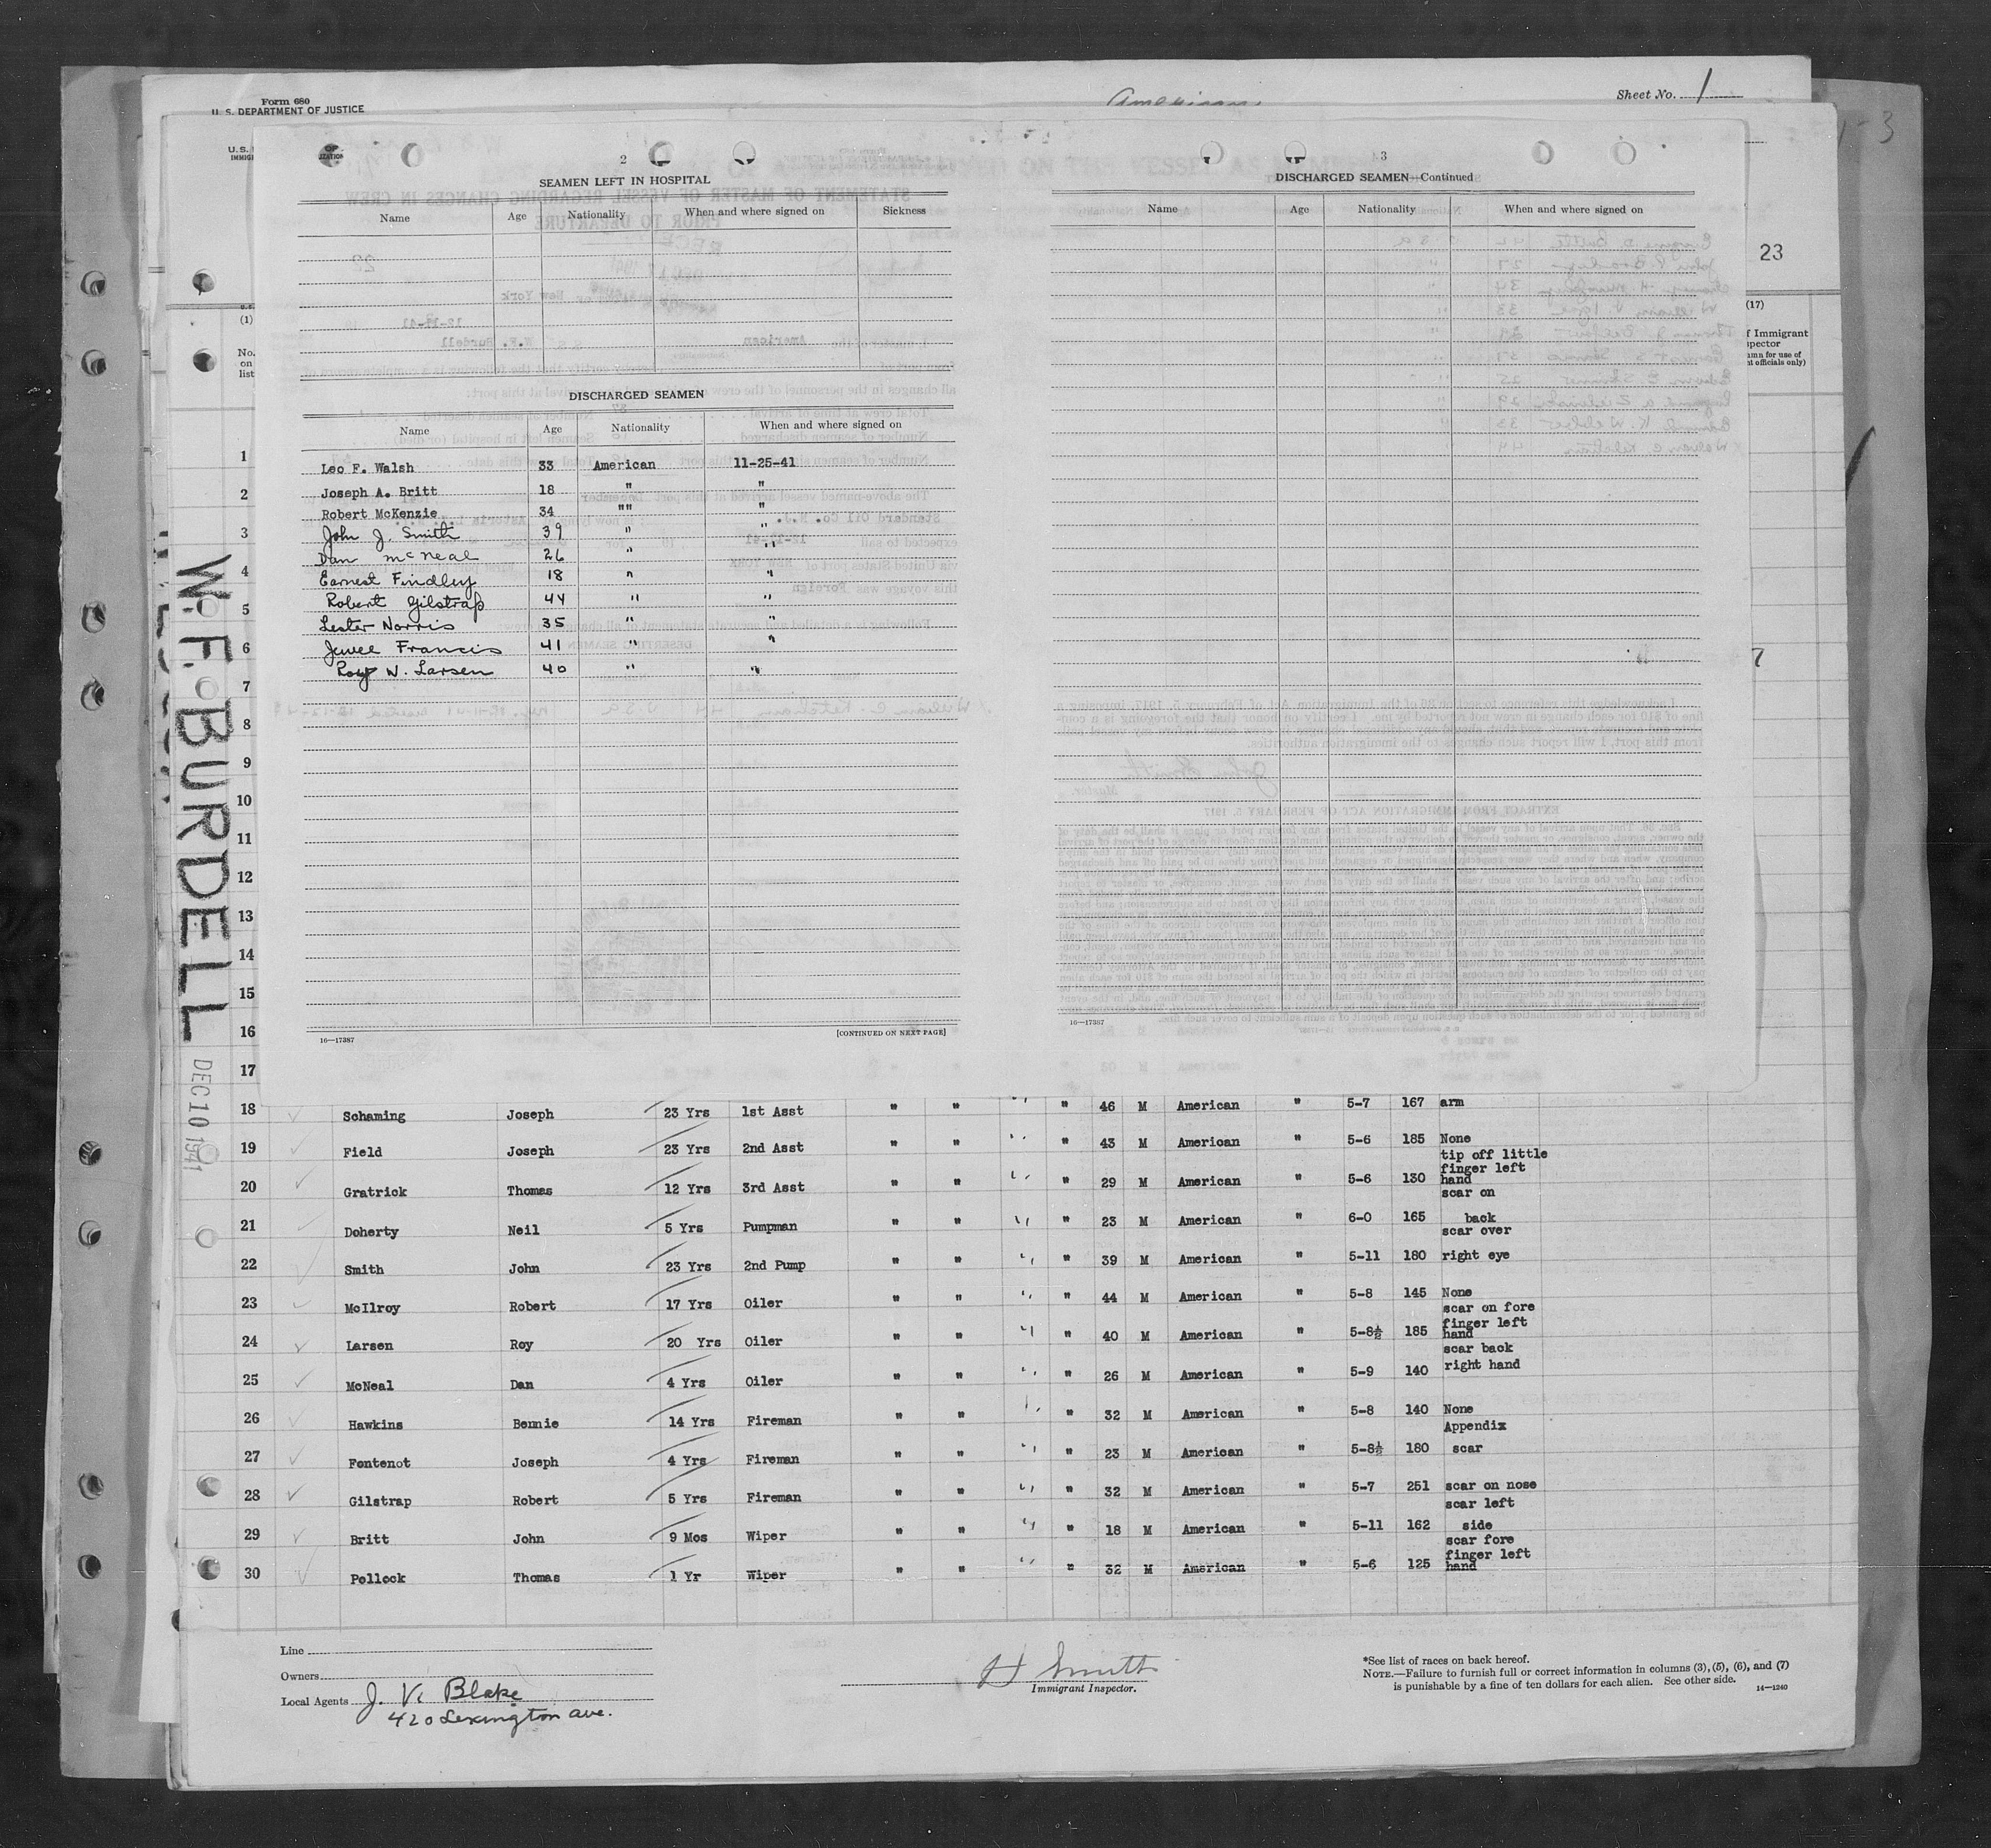 Form 680
U. S. DEPARTMENT OF JUSTICE
Sheet No. 1
U.S.
IMMIG
2
SEAMEN LEFT IN HOSPITAL
Name Age Nationality When and where signed on Sickness
DISCHARGED SEAMEN
Name Age Nationality When and where signed on
Leo F. Walsh 33 American 11-25-41
Joseph A. Britt 18 " "
Robert McKenzie 34 "" "
John J. Smith 39 " "
Dan McNeal 26 " "
Earnest Findley 18 " "
Robert Gilstrap 44 " "
Lester Norris 35 " "
Francis 41 " "
Roy W. Larsen 40 " "
16—17387
[CONTINUED ON NEXT PAGE]
3
DISCHARGED SEAMEN—Continued
Name Age Nationality When and where signed on
16—17387
23
(17)
f Immigrant
spector
mn for use of
nt officials only)
(1)
No.
on
list
1
2
3
4
5
6
7
8
9
10
11
12
13
14
15
16
17
W. F. BURDELL
DEC 10 1941
18 Schaming Joseph 23 Yrs 1st Asst " " " " 46 M American " 5-7 167 arm
19 Field Joseph 23 Yrs 2nd Asst " " " " 43 M American " 5-6 185 None
tip off little
finger left
20 Gratrick Thomas 12 Yrs 3rd Asst " " " " 29 M American " 5-6 130 hand
scar on
21 Doherty Neil 5 Yrs Pumpman " " " " 23 M American " 6-0 165 back
scar over
22 Smith John 23 Yrs 2nd Pump " " " " 39 M American " 5-11 180 right eye
23 McIlroy Robert 17 Yrs Oiler " " " " 44 M American " 5-8 145 None
scar on fore
finger left
24 Larsen Roy 20 Yrs Oiler " " " " 40 M American " 5-8½ 185 hand
scar back
25 McNeal Dan 4 Yrs Oiler " " " " 26 M American " 5-9 140 right hand
26 Hawkins Bennie 14 Yrs Fireman " " " " 32 M American " 5-8 140 None
Appendix
27 Fontenot Joseph 4 Yrs Fireman " " " " 23 M American " 5-8½ 180 scar
28 Gilstrap Robert 5 Yrs Fireman " " " " 32 M American " 5-7 251 scar on nose
scar left
29 Britt John 9 Mos Wiper " " " " 18 M American " 5-11 162 side
scar fore
finger left
30 Pollock Thomas 1 Yr Wiper " " " " 32 M American " 5-6 125 hand
Line
Owners
Local Agents J. V. Blake
420 Lexington Ave.
H Smith
Immigrant Inspector.
*See list of races on back hereof.
NOTE.—Failure to furnish full or correct information in columns (3), (5), (6), and (7)
is punishable by a fine of ten dollars for each alien. See other side.
14—1240